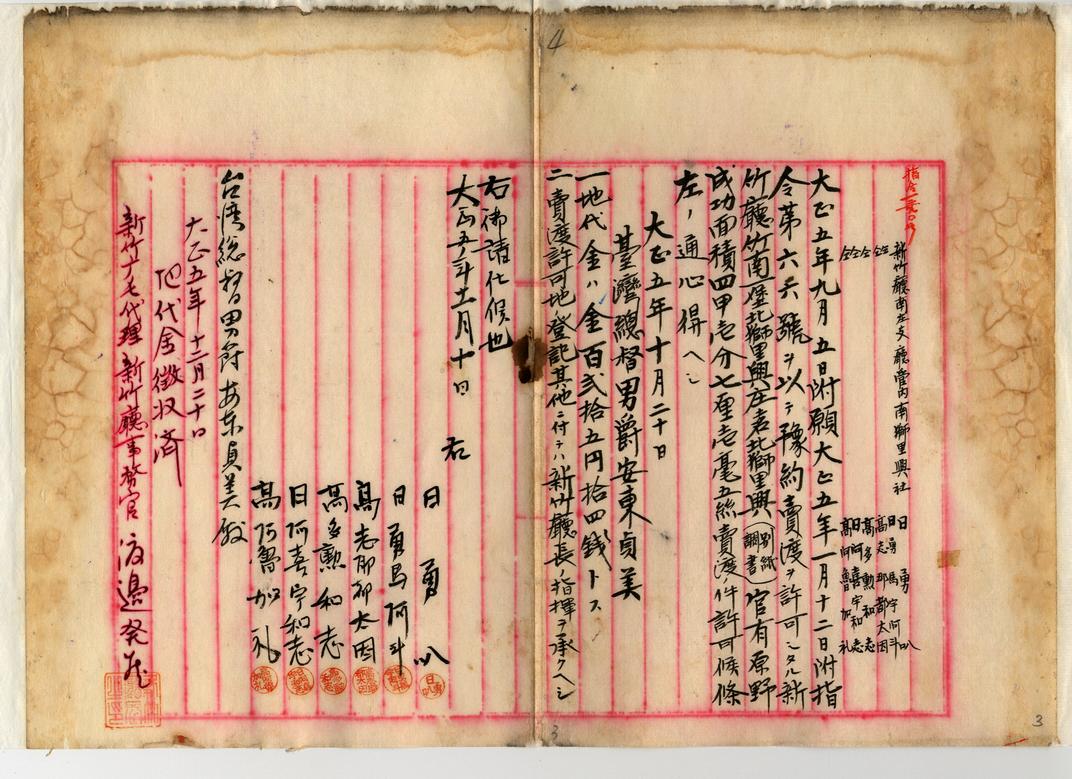 4
指令一五〇八
新竹廳南庄支廳管內南獅里興社
日勇叭
仝 日勇馬宇阿斗
仝 高志那都太因
仝 高多勳和志
仝 日阿喜宇和志
高阿魯加礼
大正五年九月五日附願大正五年一月十二日附指
令第六六號ヲ以テ豫約賣渡ヲ許可シタル新
竹廳竹南一堡北獅里興庄土名北獅里興(別紙調書)官有原野
成功面積四甲壱分七厘壱毫五絲賣渡ノ件許可候條
左ノ通心得ヘシ
大正五年十月二十日
臺灣總督男爵安東貞美
一地代金ハ金百弐拾五円拾四銭トス
二賣渡許可地ノ登記其他ニ付テハ新竹廳長ノ指揮ヲ承クヘシ
右御請仕候也
大正五年十一月十日
右
日勇叭
日勇馬阿斗
高志那都太因
高多勳和志
日阿喜宇和志
高阿魯加礼
台湾総督男爵安東貞美殿
大正五年十二月二十日
地代金徴収済
新竹廳長代理新竹廳事務官渡邉発蔵
3
3